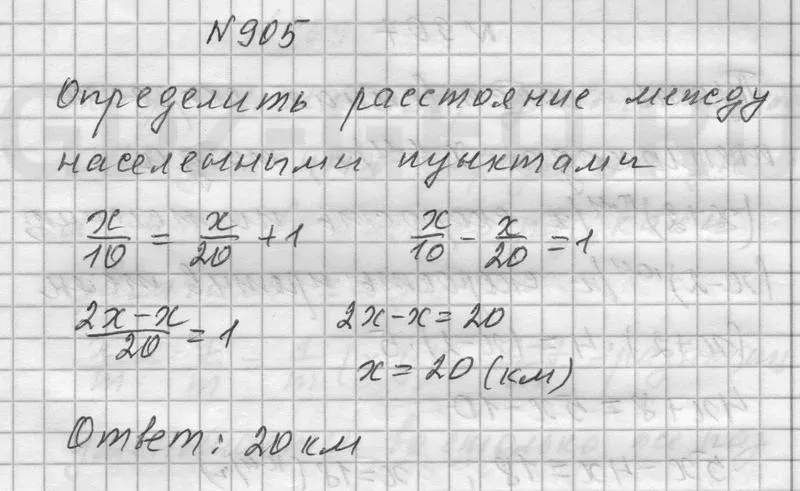 №905
Определить расстояние между
населенными пунктами
x/10 = x/20 + 1    x/10 - x/20 = 1
(2x-x)/20 = 1    2x-x = 20
x = 20 (км)
Ответ: 20 км